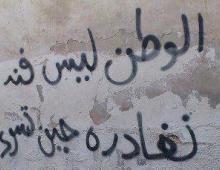 الوطن ليس فند
نغادره حين تسوء